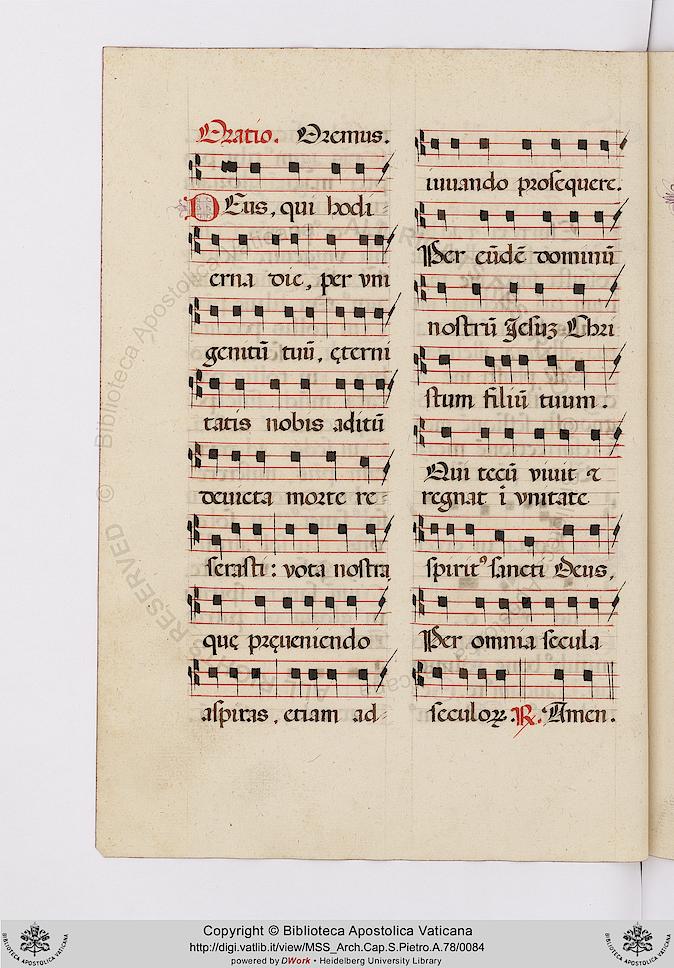 Oratio. Oremus.
DEus, qui hodi
erna die, per vni
genitū tuū, ęterni
tatis nobis aditū
devicta morte re-
serasti: vota nostra
quę pręveniendo
aspiras, etiam ad-
iuuando prosequere.
Per eūdē dominū
nostrū Jesuz Chri
stum filiū tuum.
Qui tecū viuit ⁊
regnat ī vnitate
spiritꝰ sancti Deus,
Per omnia secula
seculoꝝ. ℟. Amen.
BIBLIOTECA APOSTOLICA VATICANA
Copyright © Biblioteca Apostolica Vaticana
http://digi.vatlib.it/view/MSS_Arch.Cap.S.Pietro.A.78/0084
powered by DWork • Heidelberg University Library
BIBLIOTECA APOSTOLICA VATICANA